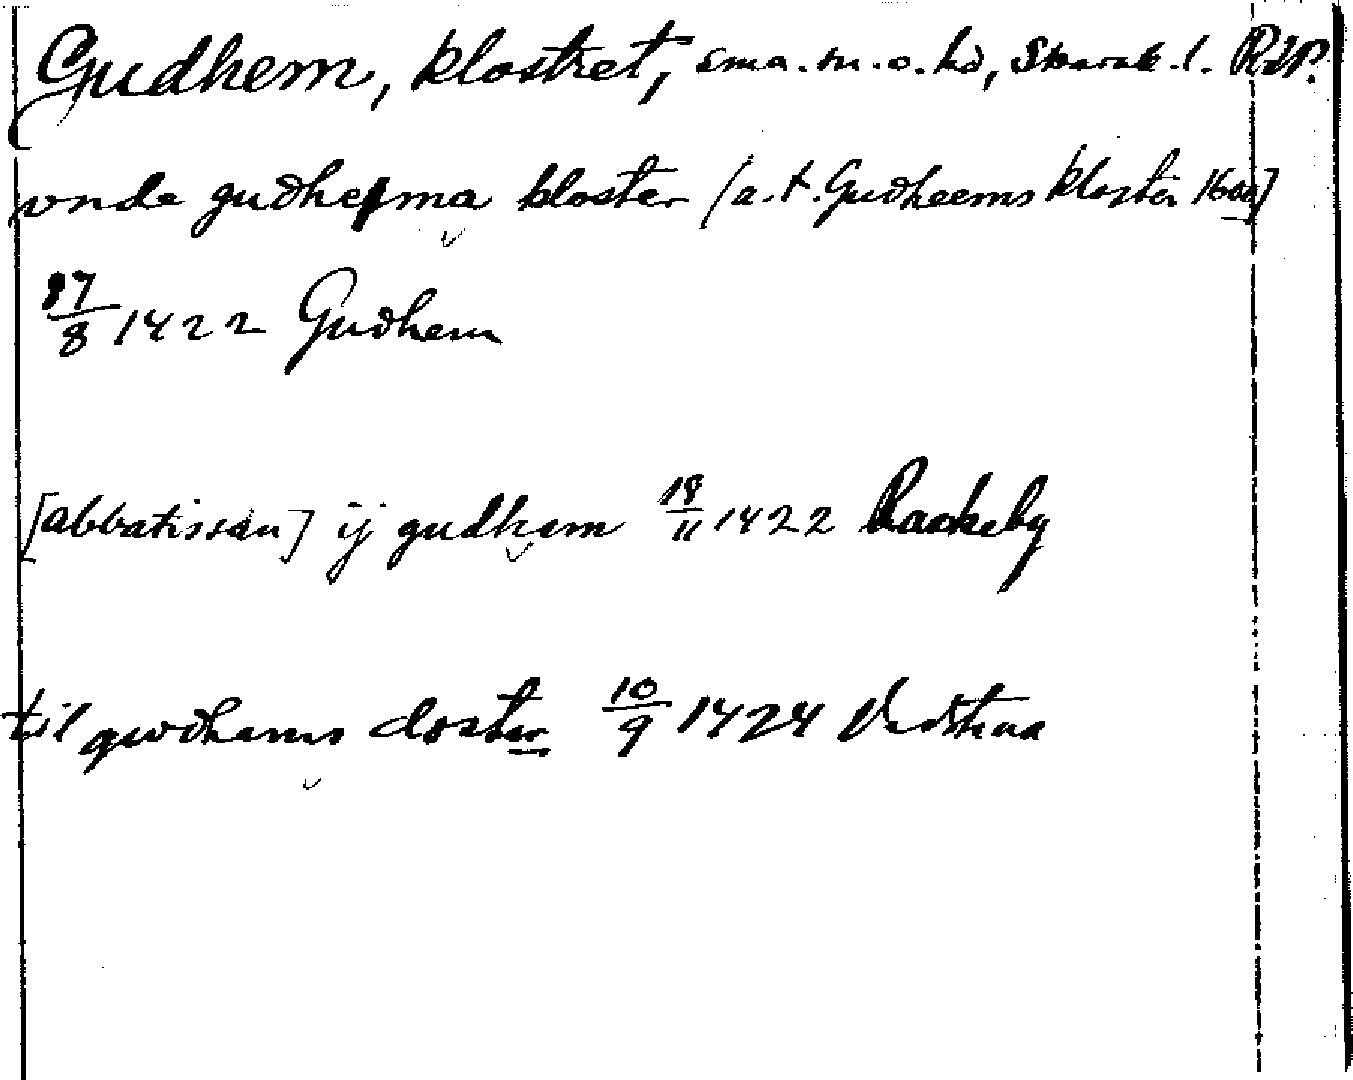 Gudhem, klostret, sma. m. o. hd, Skarab. l. RAP.
vnde gudhema kloster [a. t. Gudheems kloster 1600]
17/8 1422 Gudhem
[abbatissan] ij gudhem 18/11 1422 Rackeby
til gwdhems closter 10/9 1424